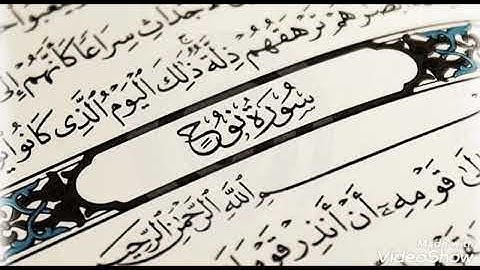 جْدَاثِ سِرَاعًا كَأَنَّهُمْ إِلَى
تَرْهَقُهُمْ ذِلَّةٌ ذَٰلِكَ ٱلْيَوْمُ ٱلَّذِى كَانُوا
سُورَةُ نُوحٍ
ٱللَّهِ ٱلرَّحْمَٰنِ ٱلرَّحِيمِ
قَوْمِهِۦٓ أَنْ أَنذِرْ قَوْمَكَ
Made with
VideoShow